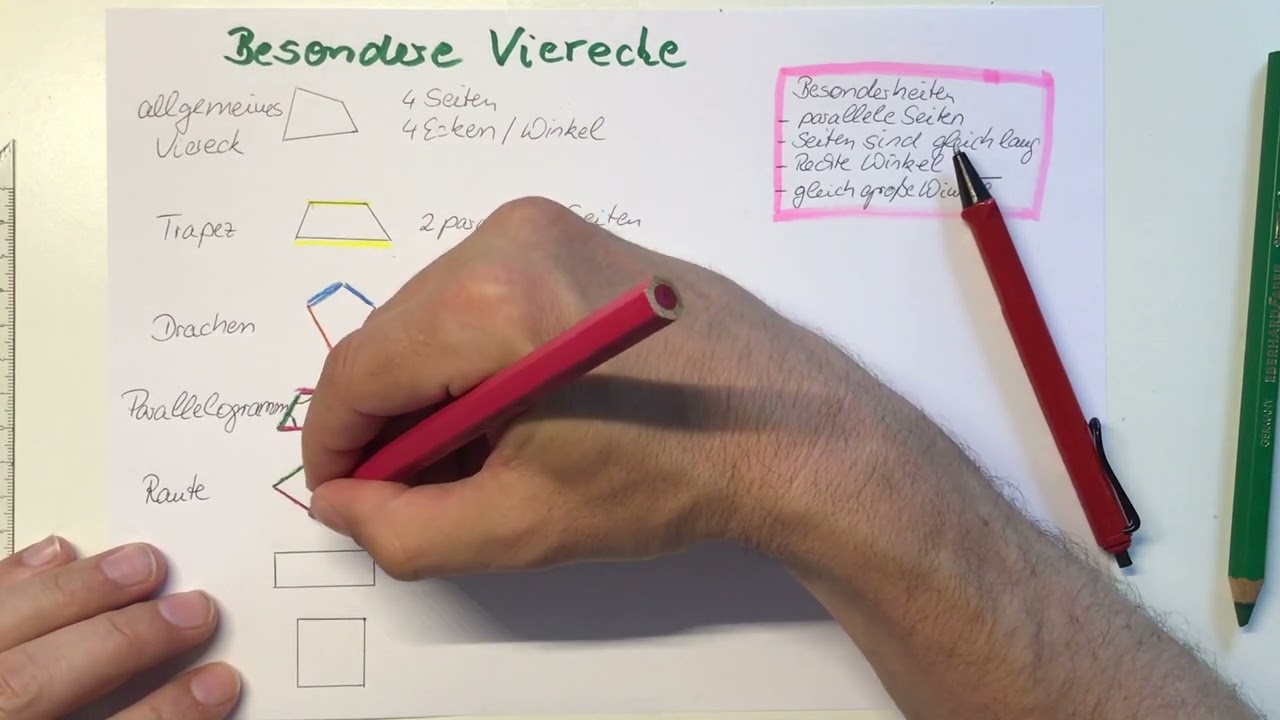 Besondere Vierecke
allgemeines
Viereck
4 Seiten
4 Ecken / Winkel
Besonderheiten
- parallele Seiten
- Seiten sind gleich lang
- Rechte Winkel
- gleich große
Trapez
2 Seiten
Drachen
Parallelogramm
Raute
GERMANY EBERHARD